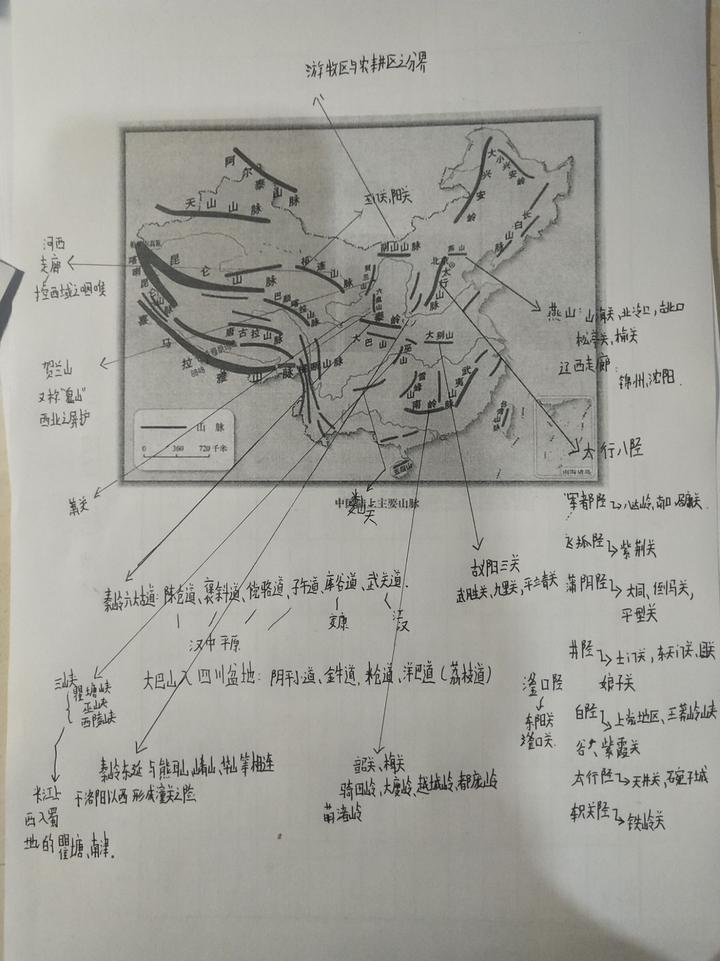 游牧区与农耕区之分界
玉门关,阳关
河西
走廊
控西域之咽喉
贺兰山
又称"
西北之屏护
萧关
阿尔泰山脉
天山山脉
昆仑山脉
祁连山
阴山山脉
燕山
北京
太行山脉
大兴安岭
小兴安岭
长白山脉
贺兰山
六盘山
秦岭
大巴山
巫山
大别山
巴颜喀拉山
唐古拉山
喜马拉雅山脉
横断山脉
雪峰山
武夷山
南岭
台湾山
五指山
山脉
0 360 720千米
南海诸岛
中国陆上主要山脉
燕山:山海关,
松亭关、榆关
辽西走廊:
锦州,沈阳.
太行八陉
军都陉→八达岭,南口,居庸关.
飞狐陉→紫荆关
蒲阴陉→大同,倒马关,
平型关
井陉→土门关,东天门关、固关
娘子关
白陉→上党地区、
紫霞关
太行陉→天井关、碗子城
轵关陉→铁岭关
滏口陉
东阳关
滏口关.
义阳三关
武胜关、九里关,平靖关
秦岭六大古道:陈仓道、褒斜道、傥骆道、子午道、库谷道、武关道.
汉中平原
安康
江汉
大巴山入四川盆地:阴平道、金牛道、米仓道、洋巴道(荔枝道)
三峡
瞿塘峡
巫峡
西陵峡
长江上
西入蜀
地的瞿塘、南津.
秦岭东延与熊耳山、崤山、华山等相连
于洛阳以西形成潼关之险
韶关、梅关
骑田岭,大庾岭,越城岭,都庞岭
萌渚岭